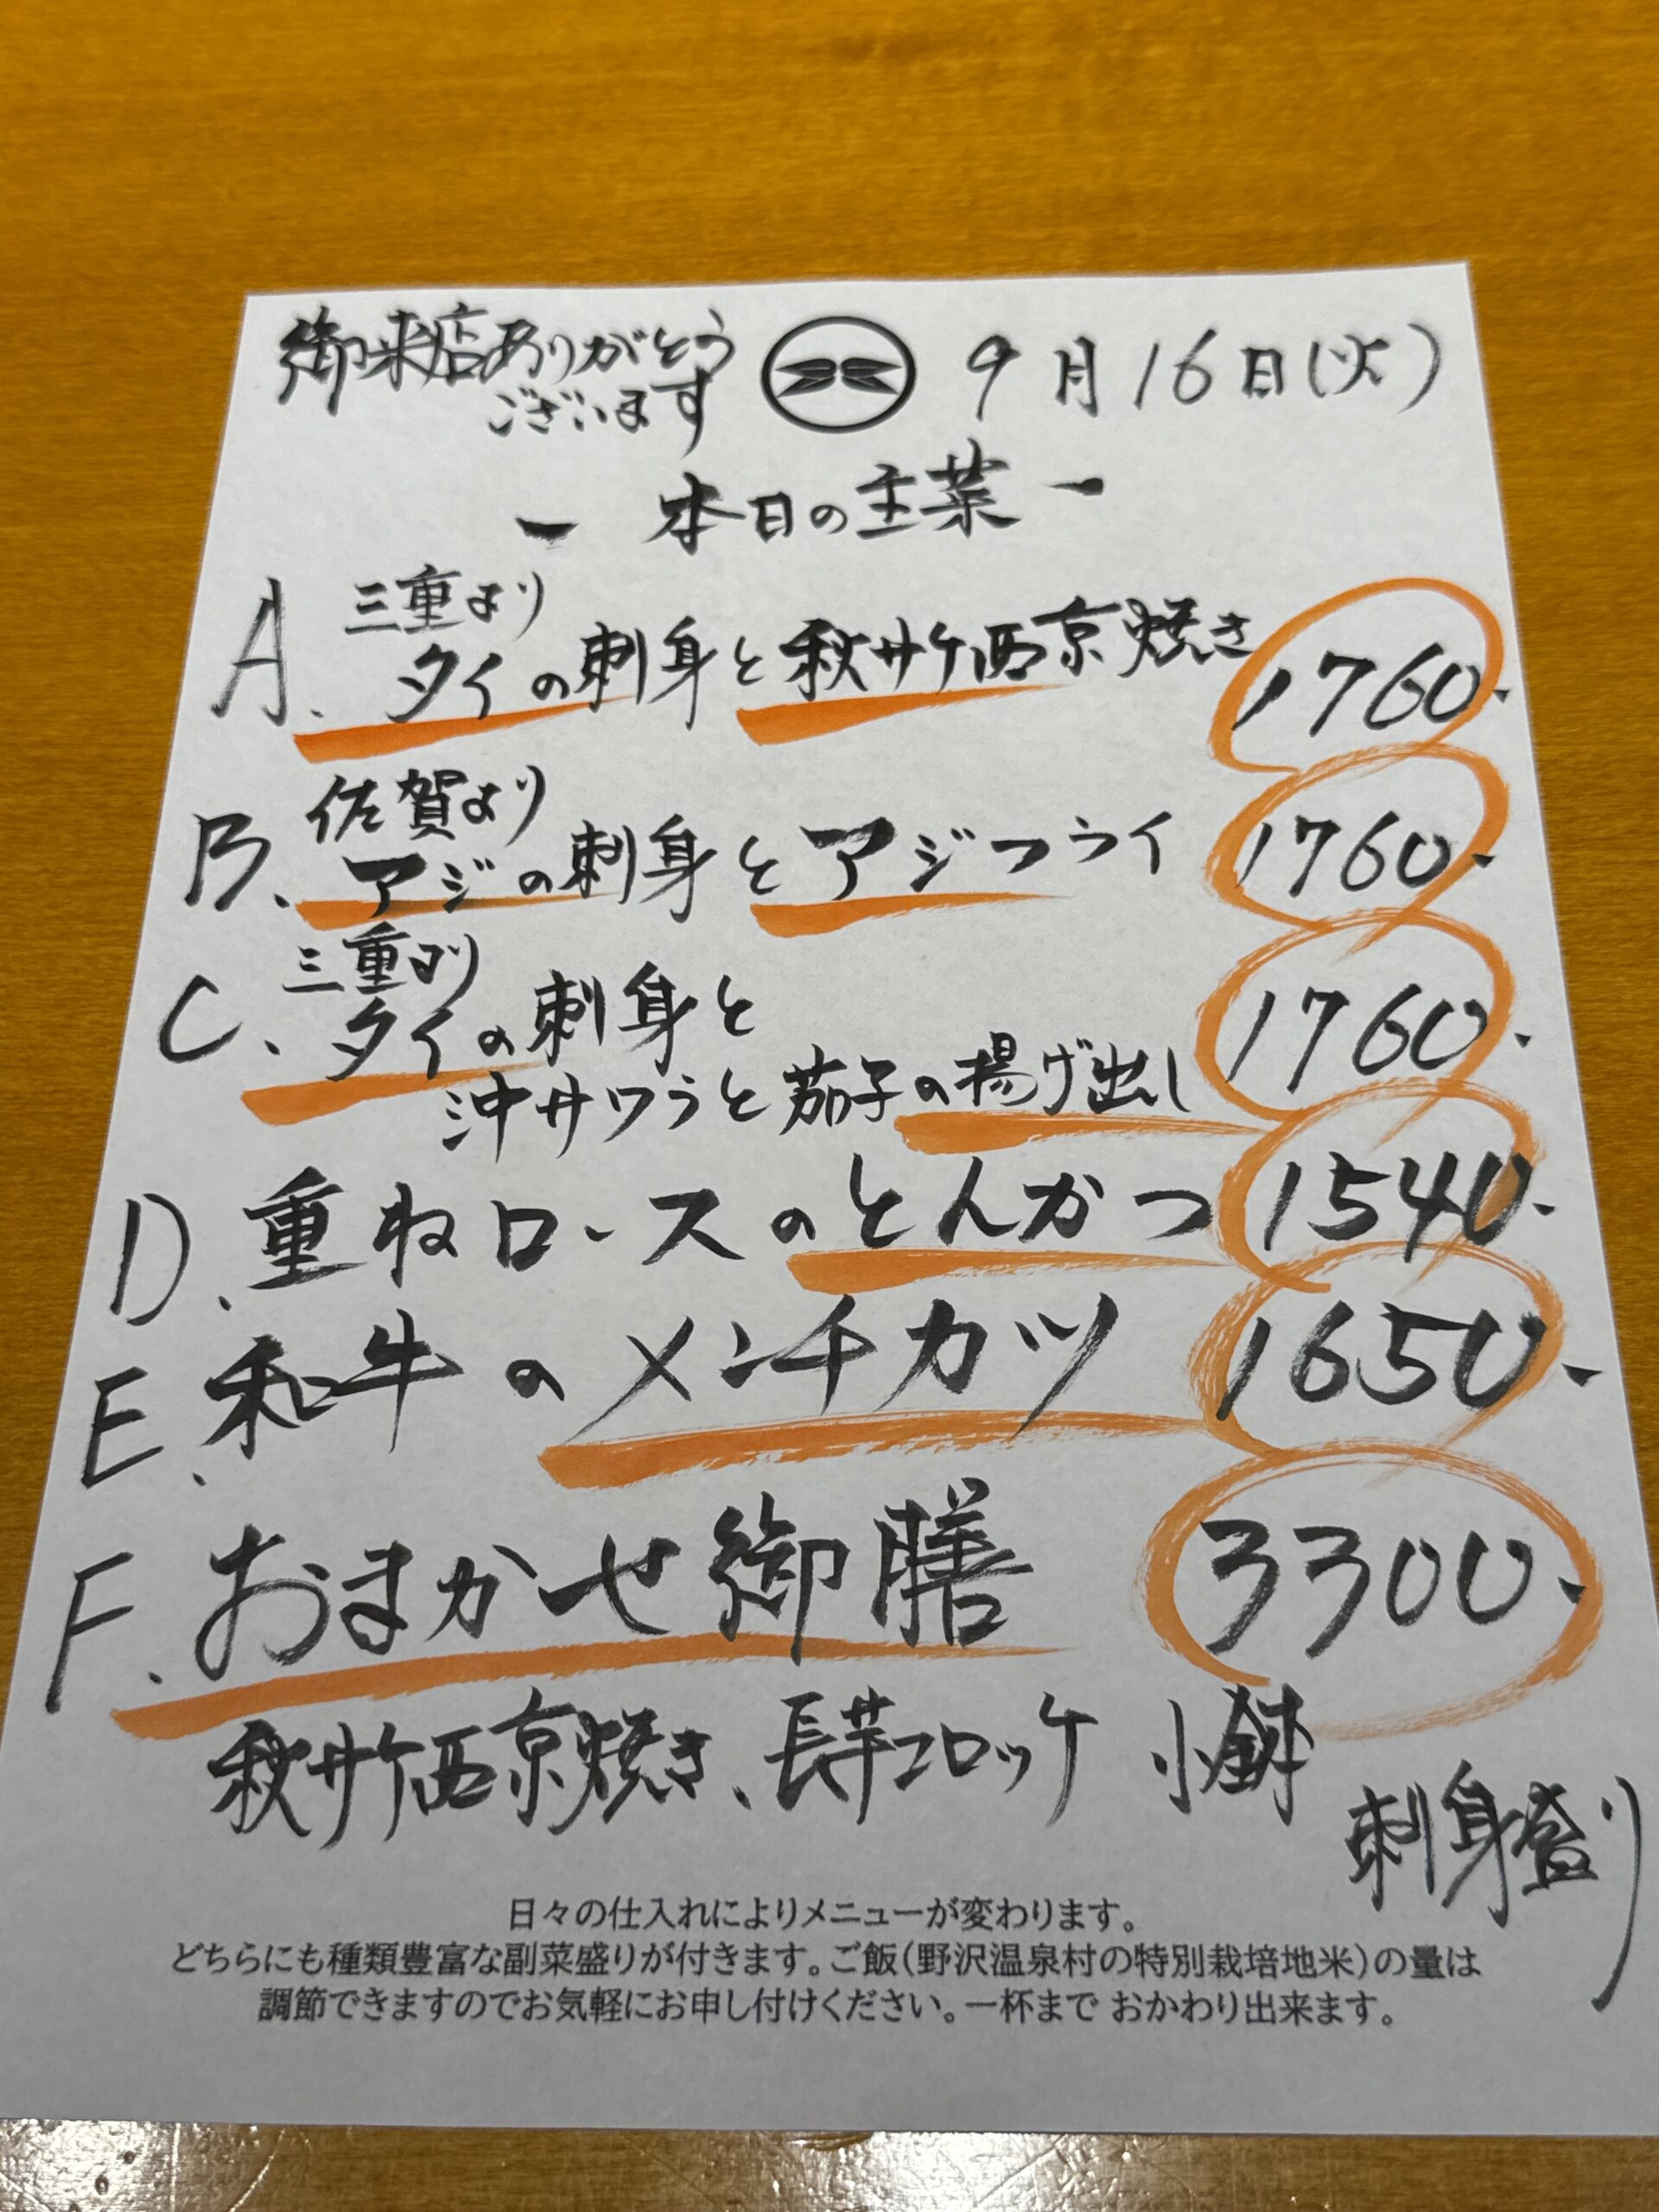 御来店ありがとう
ございます
9月16日(火)
ー 本日の主菜 ー
三重より
A. タイの刺身と秋サケ西京焼き 1760.
佐賀より
B. アジの刺身とアジフライ 1760.
三重より
C. タイの刺身と
沖サワラと茄子の揚げ出し 1760.
D. 重ねロースのとんかつ 1540.
E. 和牛のメンチカツ 1650.
F. おまかせ御膳 3300.
秋サケ西京焼き、長芋コロッケ 小鉢
刺身盛り
日々の仕入れによりメニューが変わります。
どちらにも種類豊富な副菜盛りが付きます。ご飯(野沢温泉村の特別栽培地米)の量は
調節できますのでお気軽にお申し付けください。一杯まで おかわり出来ます。